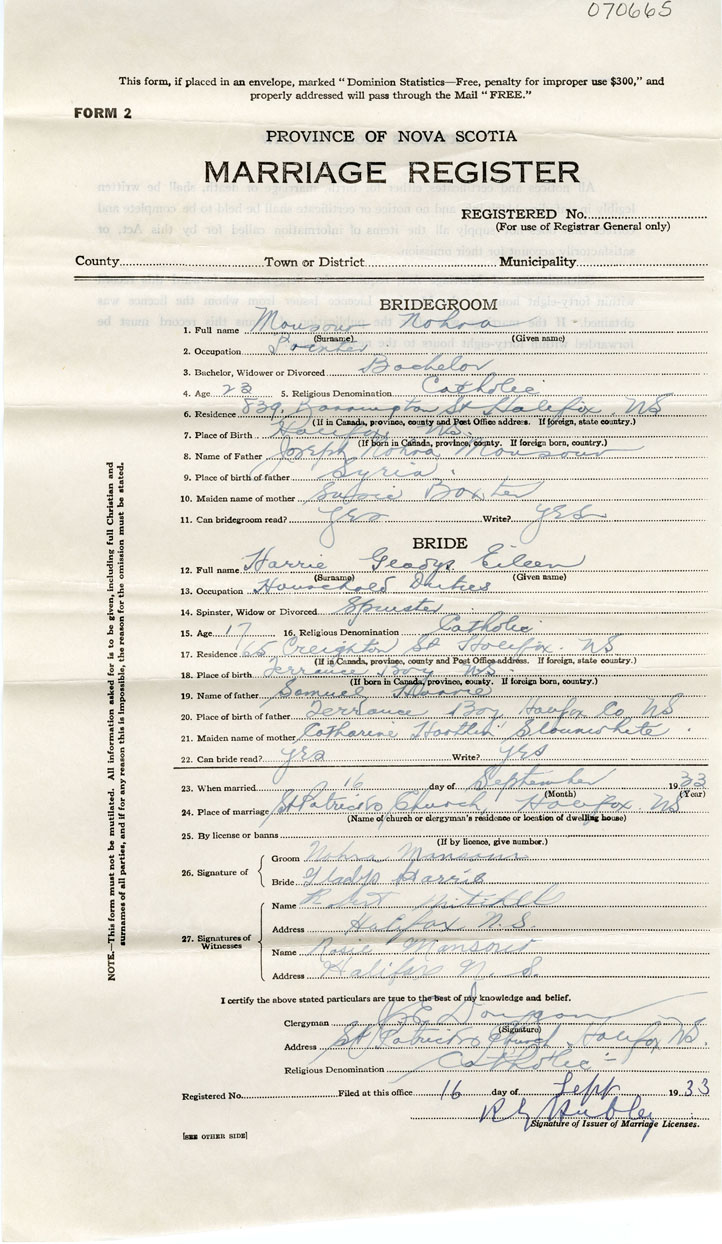 070665
This form, if placed in an envelope, marked "Dominion Statistics—Free, penalty for improper use $300," and
properly addressed will pass through the Mail "FREE."
FORM 2
PROVINCE OF NOVA SCOTIA
MARRIAGE REGISTER
REGISTERED No.
(For use of Registrar General only)
County Town or District Municipality
BRIDEGROOM
1. Full name Mansour Nohra
(Surname) (Given name)
2. Occupation Painter
3. Bachelor, Widower or Divorced Bachelor
4. Age 23 5. Religious Denomination Catholic
6. Residence 839 Barrington St Halifax NS
(If in Canada, province, county and Post Office address. If foreign, state country.)
7. Place of Birth Halifax NS
(If born in Canada, province, county. If foreign born, country.)
8. Name of Father Joseph Nohra Mansour
9. Place of birth of father Syria
10. Maiden name of mother Baxter
11. Can bridegroom read? Yes Write? Yes
BRIDE
12. Full name Harrie Gladys Eileen
(Surname) (Given name)
13. Occupation Household Duties
14. Spinster, Widow or Divorced Spinster
15. Age 17 16. Religious Denomination Catholic
17. Residence Creighton St Halifax NS
(If in Canada, province, county and Post Office address. If foreign, state country.)
18. Place of birth Terrance Bay NS
(If born in Canada, province, county. If foreign born, country.)
19. Name of father Samuel Harrie
20. Place of birth of father Terrance Bay Halifax Co NS
21. Maiden name of mother Catharine Slaunwhite
22. Can bride read? yes Write? yes
23. When married 16 day of September 1933
(Month) (Year)
24. Place of marriage St Patricks Church Halifax NS
(Name of church or clergyman's residence or location of dwelling house)
25. By license or banns
(If by licence, give number.)
26. Signature of Groom Nohra Mansour
Bride Gladys Harrie
27. Signatures of Witnesses Name Robert Mitchell
Address Halifax N.S.
Name Rosie Mansour
Address Halifax N. S.
I certify the above stated particulars are true to the best of my knowledge and belief.
Clergyman
(Signature)
Address St Patricks Church, Halifax NS.
Religious Denomination Catholic
Registered No. Filed at this office 16 day of Sept 1933
Signature of Issuer of Marriage Licenses.
[SEE OTHER SIDE]
NOTE.—This form must not be mutilated. All information asked for is to be given, including full Christian and
surnames of all parties, and if for any reason this is impossible, the reason for the omission must be stated.